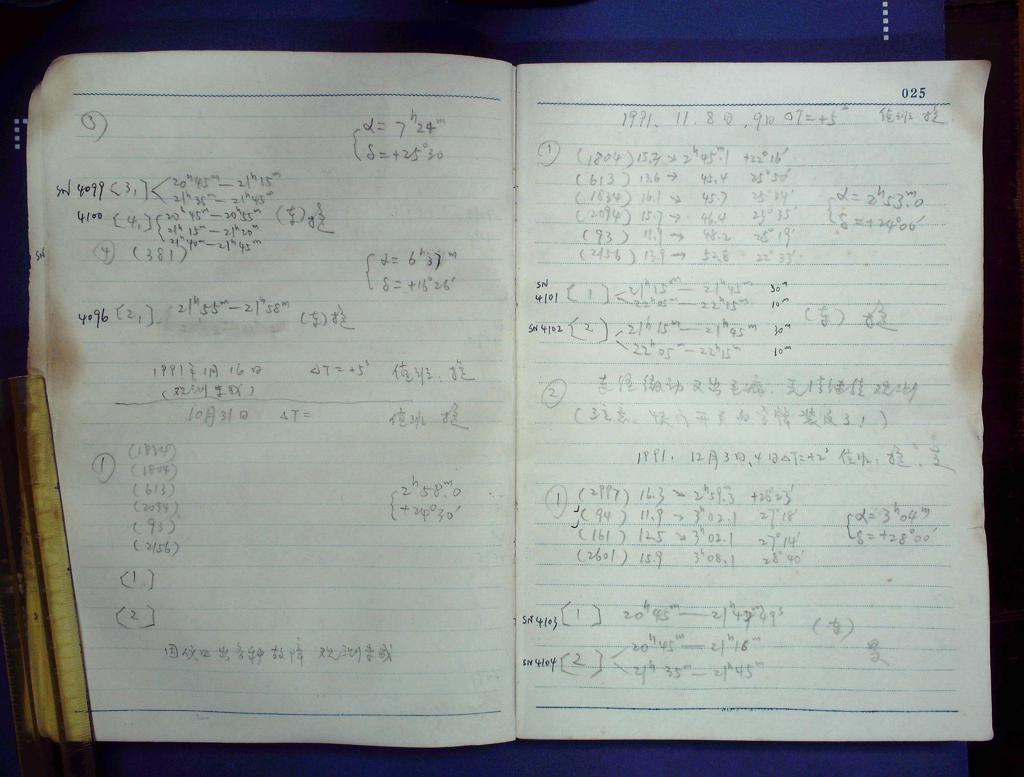 ③
α= 7ʰ24ᵐ
δ=+25°30
SN 4099 [3,] 20ʰ45ᵐ—21ʰ15ᵐ
21ʰ35ᵐ—21ʰ45ᵐ
4100 [4,] 20ʰ45ᵐ—20ʰ55ᵐ (东)
21ʰ15ᵐ—21ʰ20ᵐ
21ʰ40ᵐ—21ʰ45ᵐ
SN
④ (381)
α= 6ʰ37ᵐ
δ=+16°26′
4096 [2,] 21ʰ55ᵐ—21ʰ58ᵐ (东)
1991年1月16日 ΔT=+5ˢ 值班:
(观测失败)
10月31日 ΔT= 值班
① (1834)
(1804)
(613)
(2094)
(93)
(2156)
2ʰ58ᵐ.0
+24°30′
[1]
[2]
因仪器出各种故障 观测失败
025
1991. 11. 8日, 9日 ΔT=+5ˢ 值班
① (1804) 15.3 → 2ʰ45ᵐ.1 +22°16′
(613) 13.6 → 45.4 25°50′
(1834) 16.1 → 45.7 25°34′
(2094) 15.7 → 46.4 23°35′
(93) 11.9 → 48.2 25°19′
(2156) 13.9 → 52.8 22°33′
α=2ʰ53ᵐ.0
δ=+24°00′
SN 4101 [1] 21ʰ15ᵐ—21ʰ45ᵐ 30ᵐ
22ʰ05ᵐ—22ʰ15ᵐ 10ᵐ
(东)
SN4102 [2] 21ʰ15ᵐ—21ʰ45ᵐ 30ᵐ
22ʰ05ᵐ—22ʰ15ᵐ 10ᵐ
② 赤径微动又出毛病. 无法继续观测
(注意: 快门开关
1991. 12月3日, 4日ΔT=+2ˢ 值班:
① (2997) 16.3 → 2ʰ59ᵐ.3 +28°23′
(94) 11.9 → 3ʰ02.1 27°18′
(161) 12.5 → 3ʰ02.1 27°14′
(2601) 15.9 3ʰ08.1 28°40′
α=3ʰ04ᵐ
δ=+28°00′
SN4103 [1] 20ʰ45ᵐ—21ʰ49ˢ
(东)
SN4104 [2] 20ʰ45ᵐ—21ʰ16ᵐ
21ʰ35ᵐ—21ʰ45ᵐ